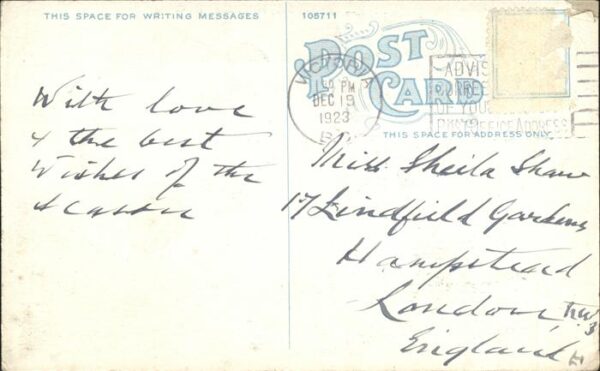 THIS SPACE FOR WRITING MESSAGES
With love
& the best
Wishes of the
season
105711
POST
CARD
VICTORIA
PM
DEC 19
1923
B.C.
ADVIS
CORRES
OF YOUR
OFFICE ADDRESS
THIS SPACE FOR ADDRESS ONLY
Miss Sheila Shaw
17 Lindfield Gardens
Hampstead
London N.W.
3
England